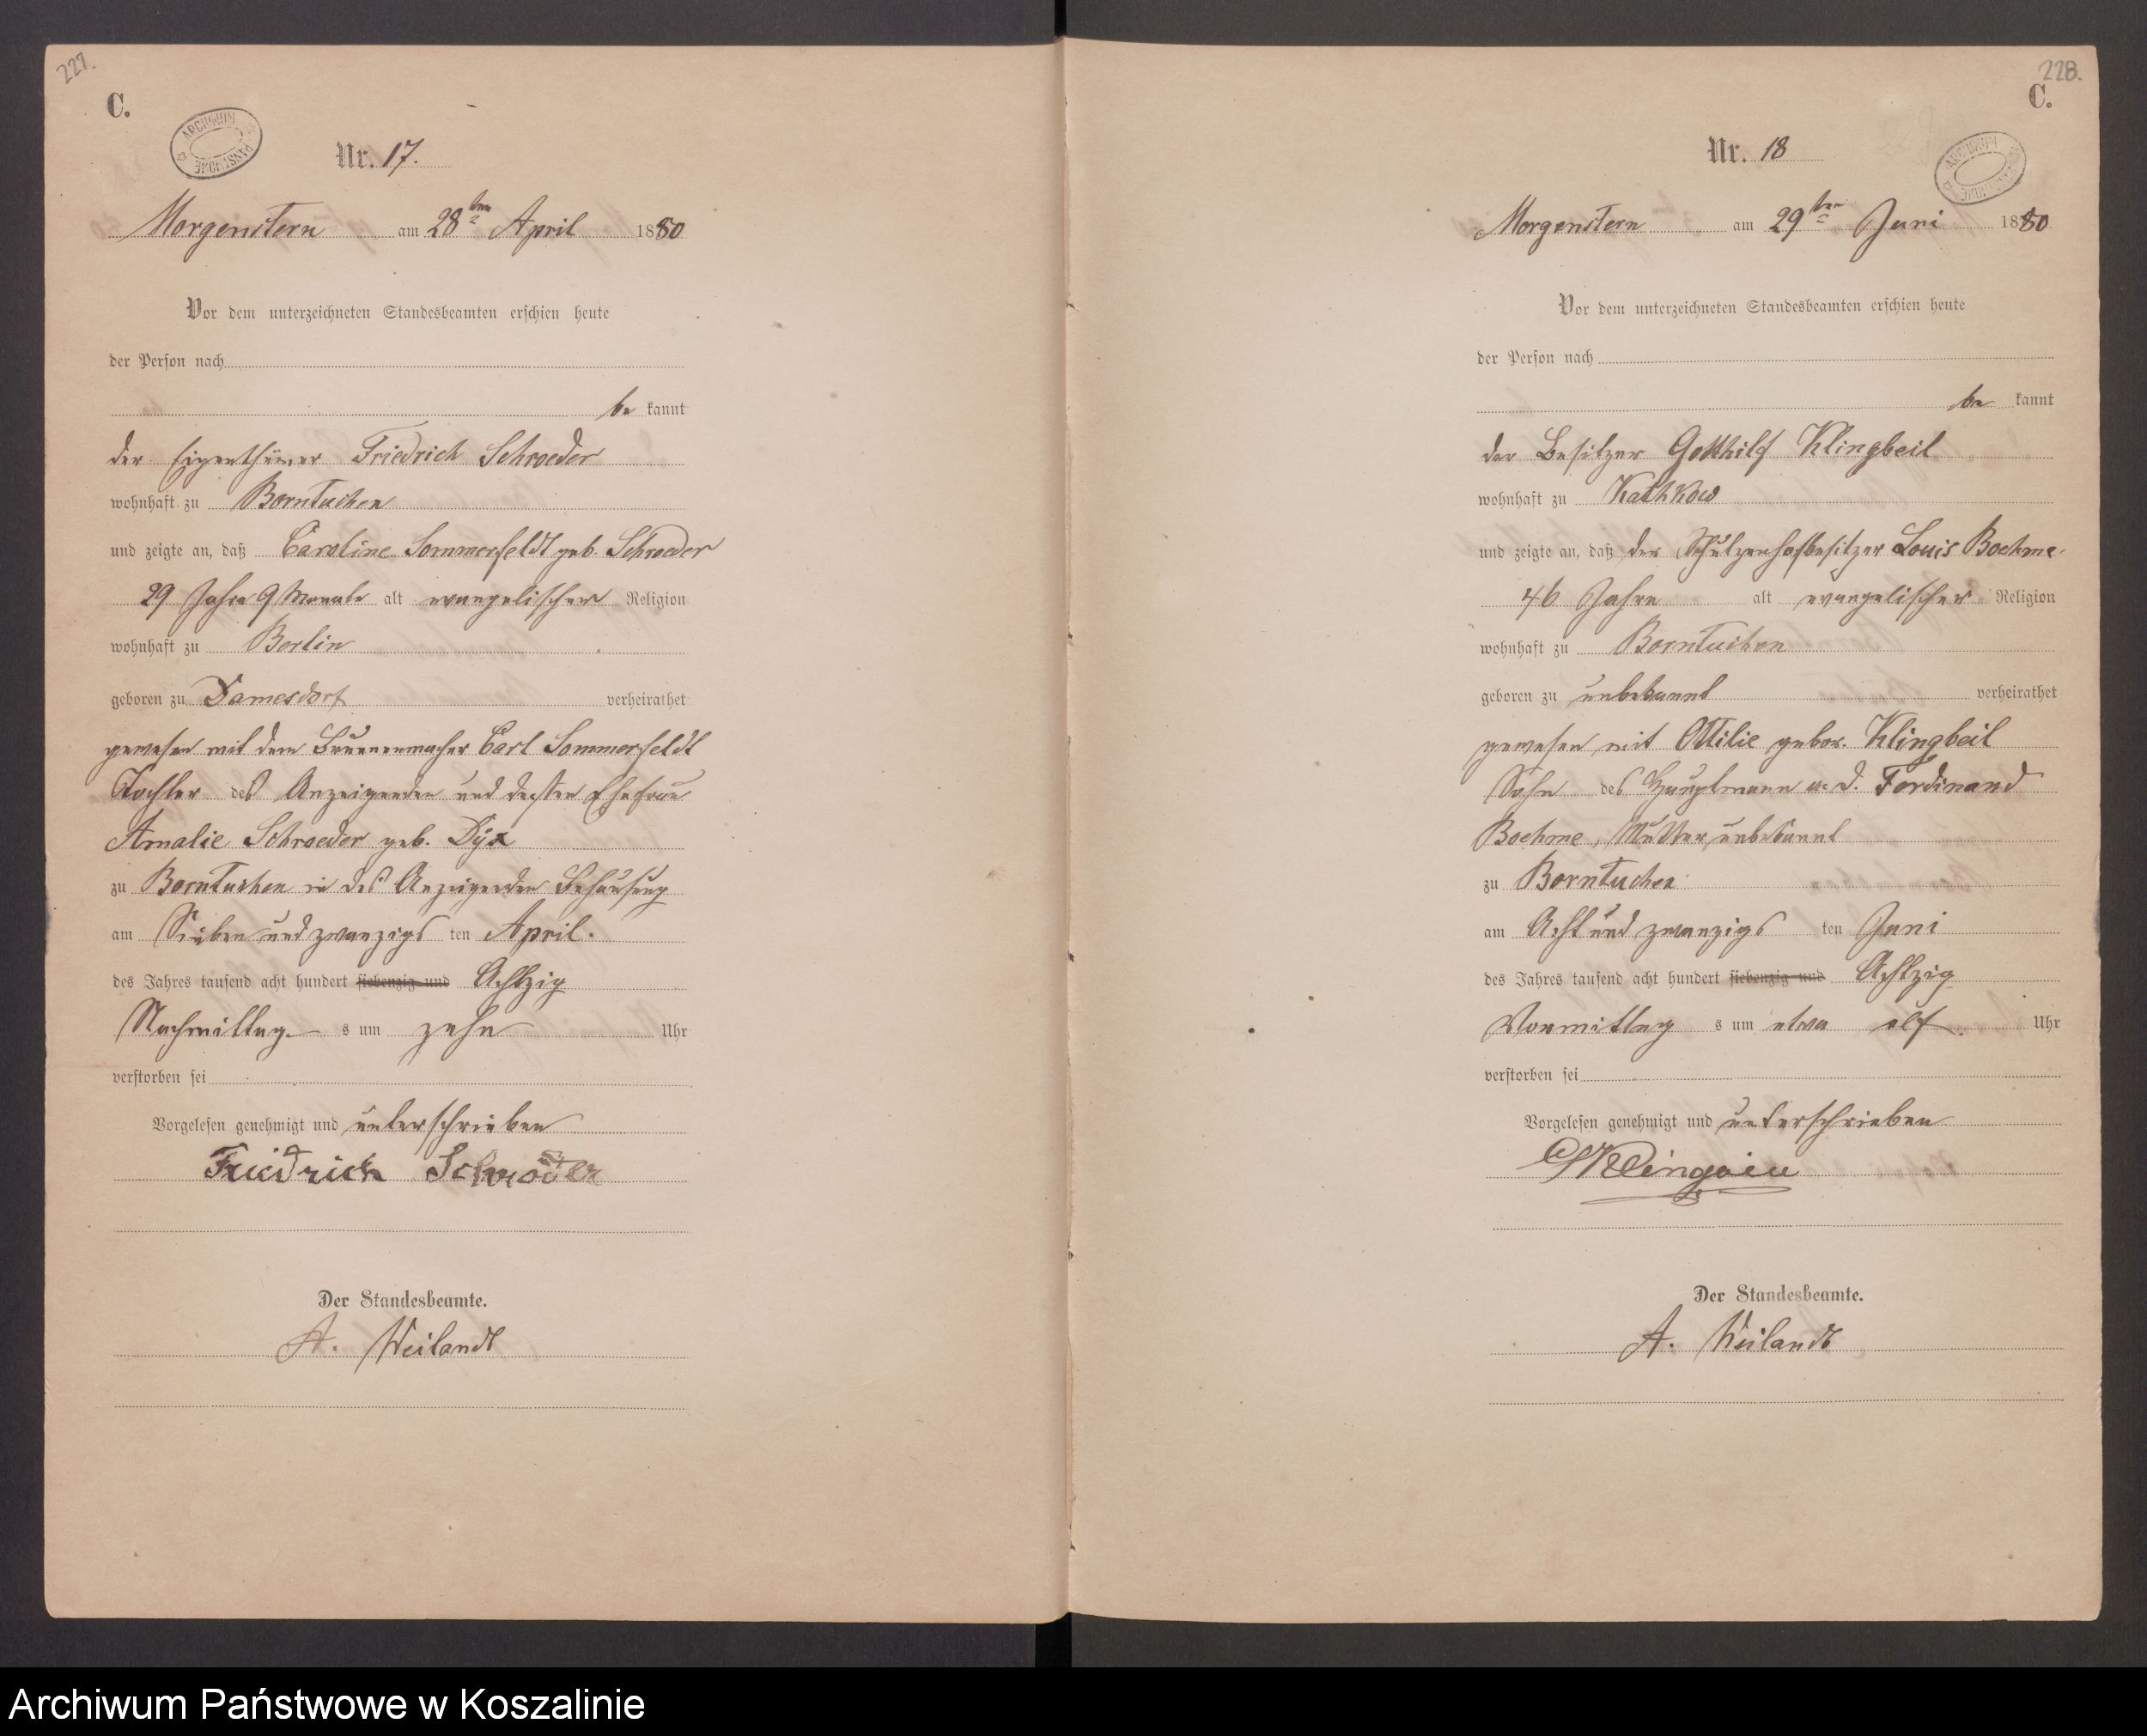 227.
C.
ARCHIWUM PAŃSTWOWE
Nr. 17.
Morgenstern am 28ten April 1880
Vor dem unterzeichneten Standesbeamten erschien heute
der Person nach
be kannt
der Eigenthümer Friedrich Schroeder
wohnhaft zu Borntuchen
und zeigte an, daß Caroline Sommerfeldt geb. Schroeder
29 Jahre 9 Monate alt evangelischer Religion
wohnhaft zu Berlin
geboren zu Damesdorf verheirathet
gewesen mit dem Brunnenmacher Carl Sommerfeldt
Tochter des Anzeigenden und dessen Ehefrau
Amalie Schroeder geb.
zu Borntuchen in des Anzeigenden Behausung
am Sieben und zwanzigs ten April.
des Jahres tausend acht hundert siebenzig und Achtzig
Nachmittag s um zehn Uhr
verstorben sei
Vorgelesen genehmigt und unterschrieben
Friedrich Schroder
Der Standesbeamte.
A. Weilandt
228.
C.
ARCHIWUM PAŃSTWOWE
Nr. 18
Morgenstern am 29ten Juni 1880
Vor dem unterzeichneten Standesbeamten erschien heute
der Person nach
be kannt
der Besitzer Gotthilf Klingbeil
wohnhaft zu Kathkow
und zeigte an, daß der Schulzenhofbesitzer Louis Boehme
46 Jahre alt evangelischer Religion
wohnhaft zu Borntuchen
geboren zu unbekannt verheirathet
gewesen mit Ottilie gebor. Klingbeil
Sohn des Hauptmann a. D. Ferdinand
Boehme, Mutter unbekannt
zu Borntuchen
am Acht und zwanzigs ten Juni
des Jahres tausend acht hundert siebenzig und Achtzig
Vormittag s um etwa elf. Uhr
verstorben sei
Vorgelesen genehmigt und unterschrieben
GKlingbeil
Der Standesbeamte.
A. Weilandt
Archiwum Państwowe w Koszalinie